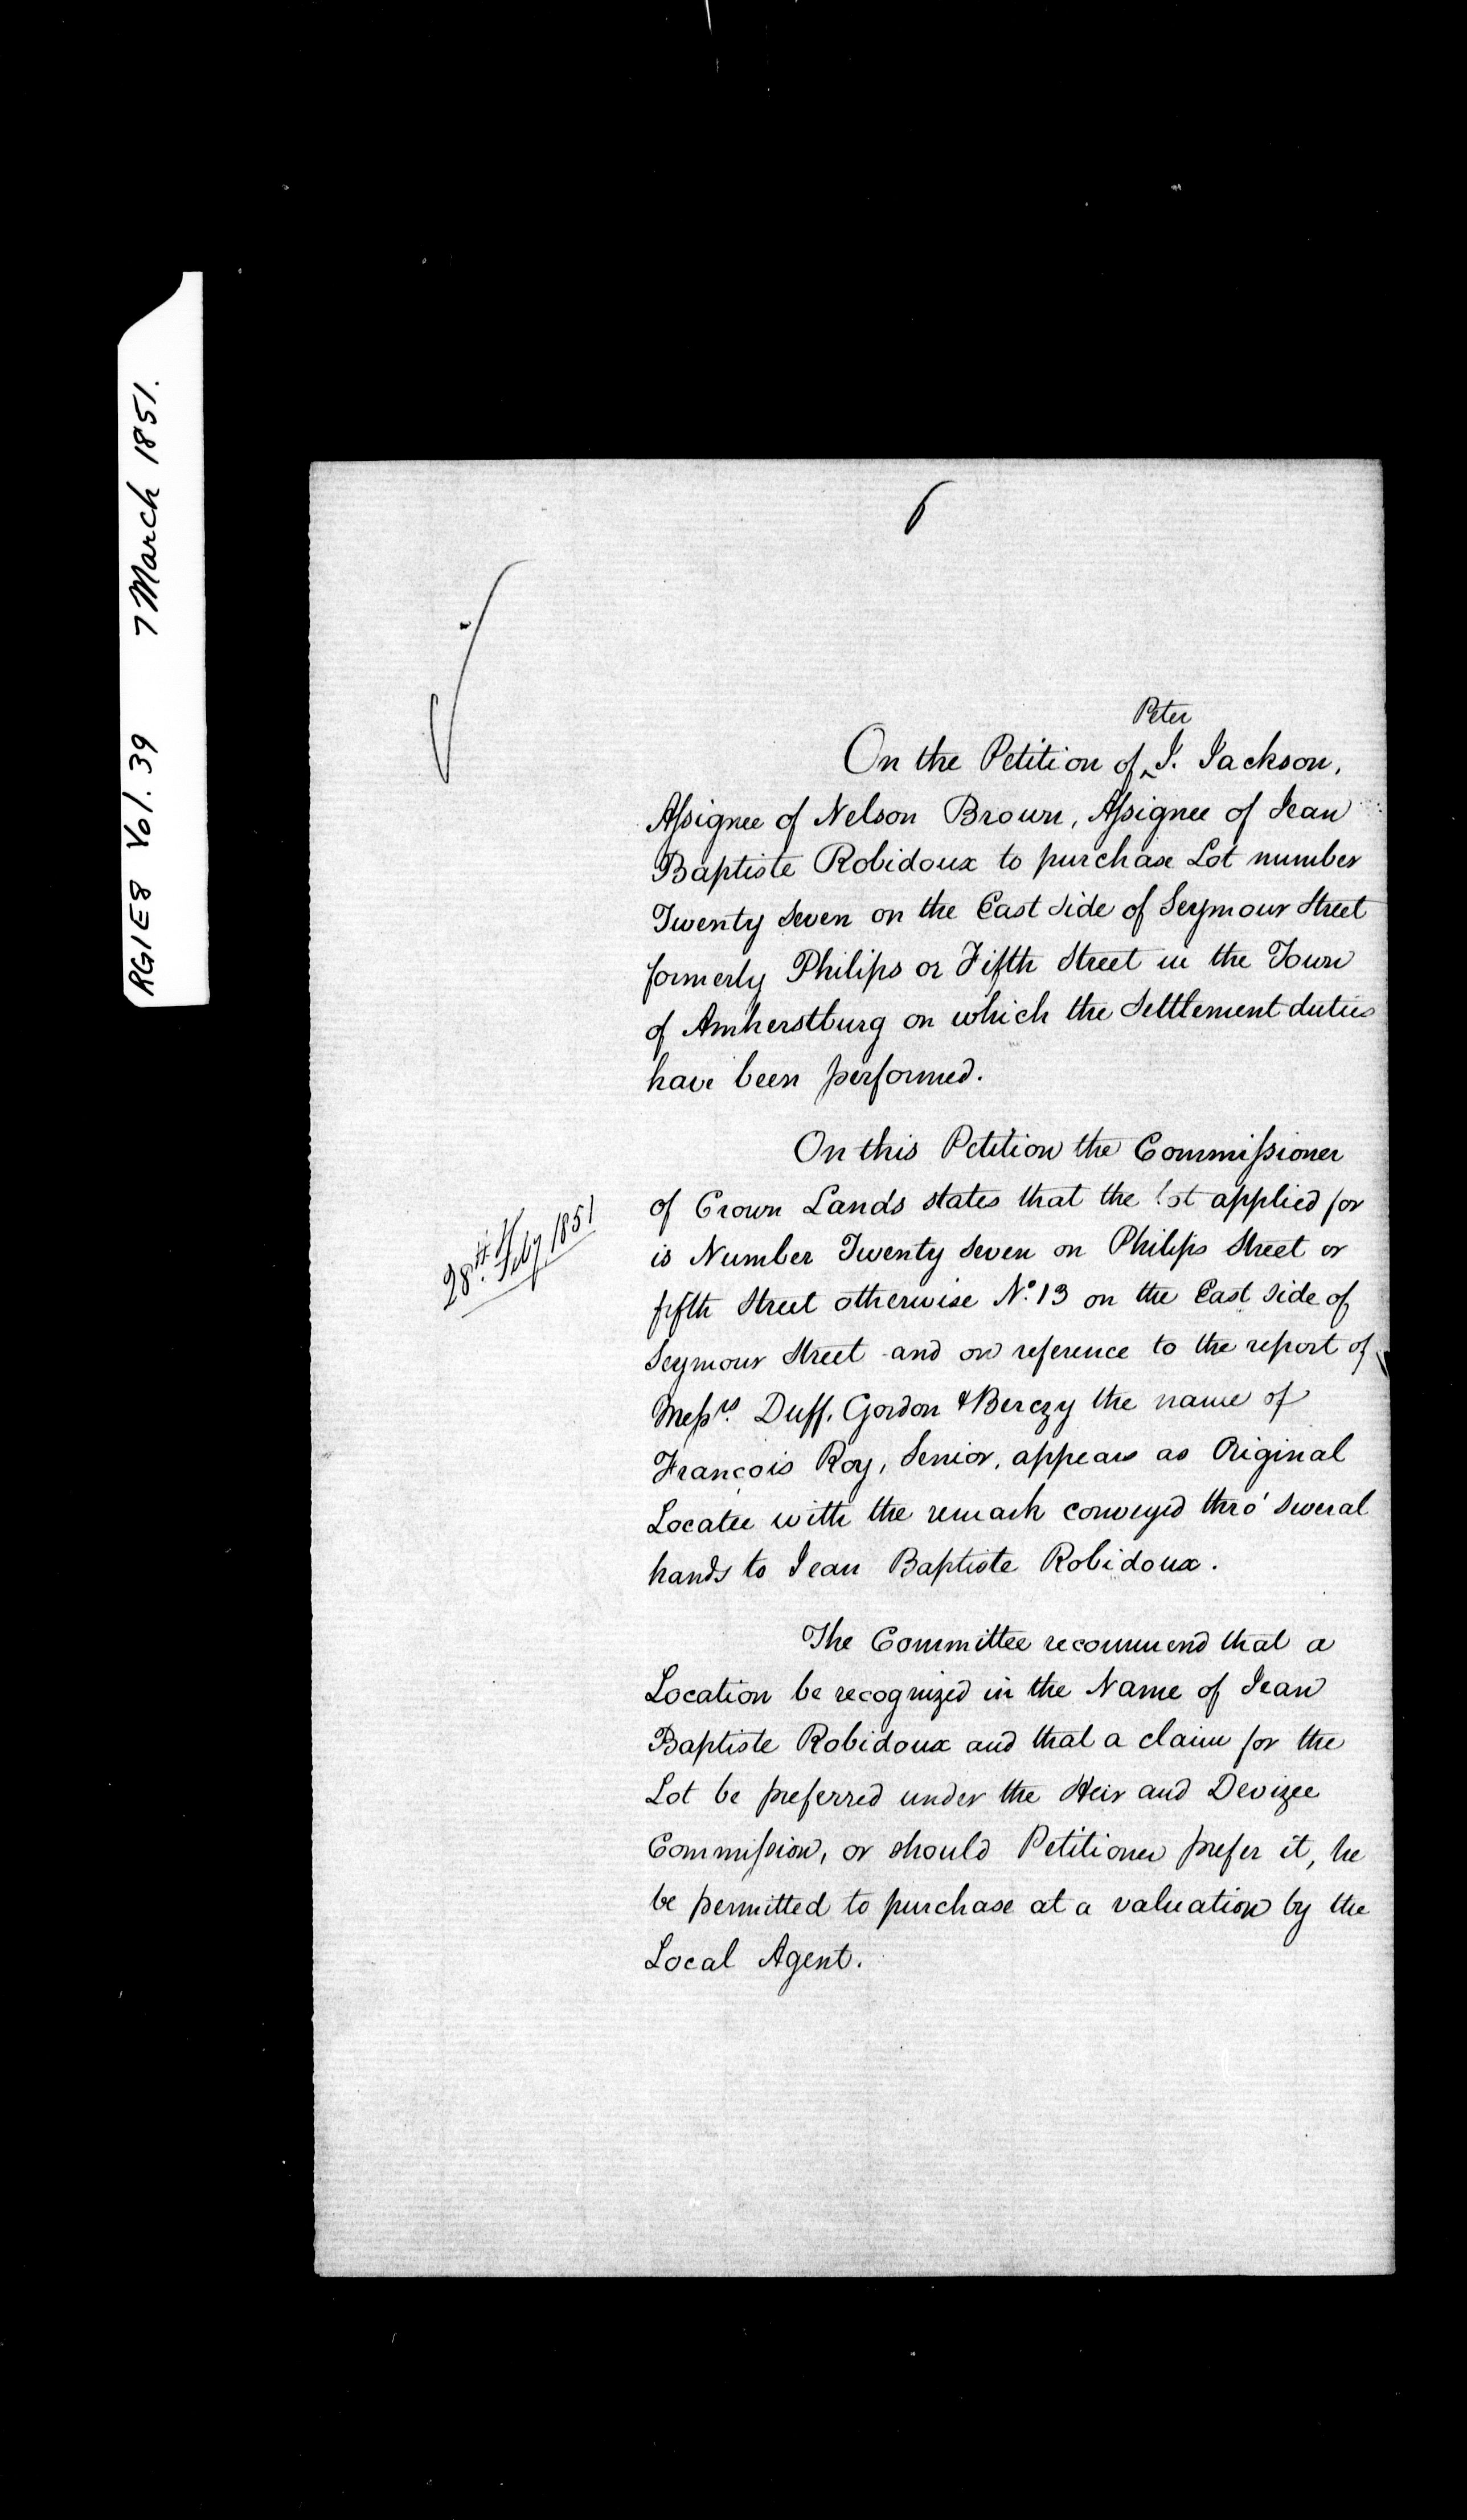 RG1E8 Vol. 39 7 March 1851.
6
Peter
On the Petition of ^ J. Jackson,
Assignee of Nelson Brown, Assignee of Jean
Baptiste Robidoux to purchase Lot number
Twenty Seven on the East Side of Seymour Street
formerly Philips or Fifth Street in the Town
of Amherstburg on which the Settlement duties
have been performed.
On this Petition the Commissioner
of Crown Lands states that the lot applied for
28th Feby 1851
is Number Twenty Seven on Philips Street or
fifth Street otherwise No. 13 on the East side of
Seymour Street and on reference to the report of
Messrs. Duff, Gordon & Berczy the name of
François Roy, Senior, appears as Original
Locatee with the remark conveyed thro' several
hands to Jean Baptiste Robidoux.
The Committee recommend that a
Location be recognized in the Name of Jean
Baptiste Robidoux and that a claim for the
Lot be preferred under the Heir and Devizee
Commission, or should Petitioner prefer it, he
be permitted to purchase at a valuation by the
Local Agent.